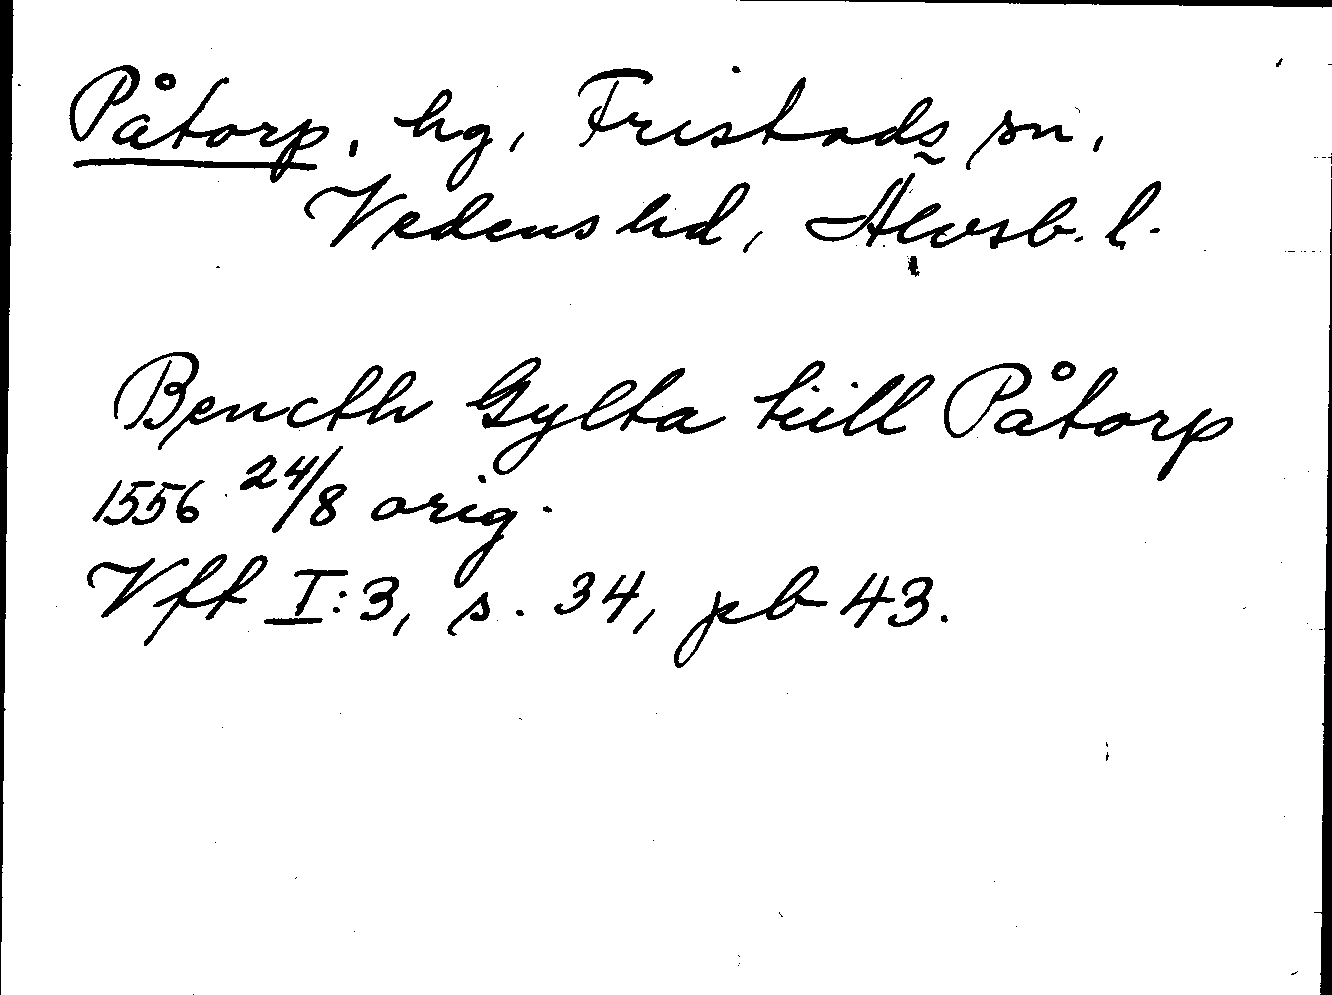 Påtorp, hg, Fristads sn,
Vedens hd, Älvsb. l.
Bencth Gylta tiill Påtorp
1556 24/8 orig.
Vft I:3, s. 34, pb 43.